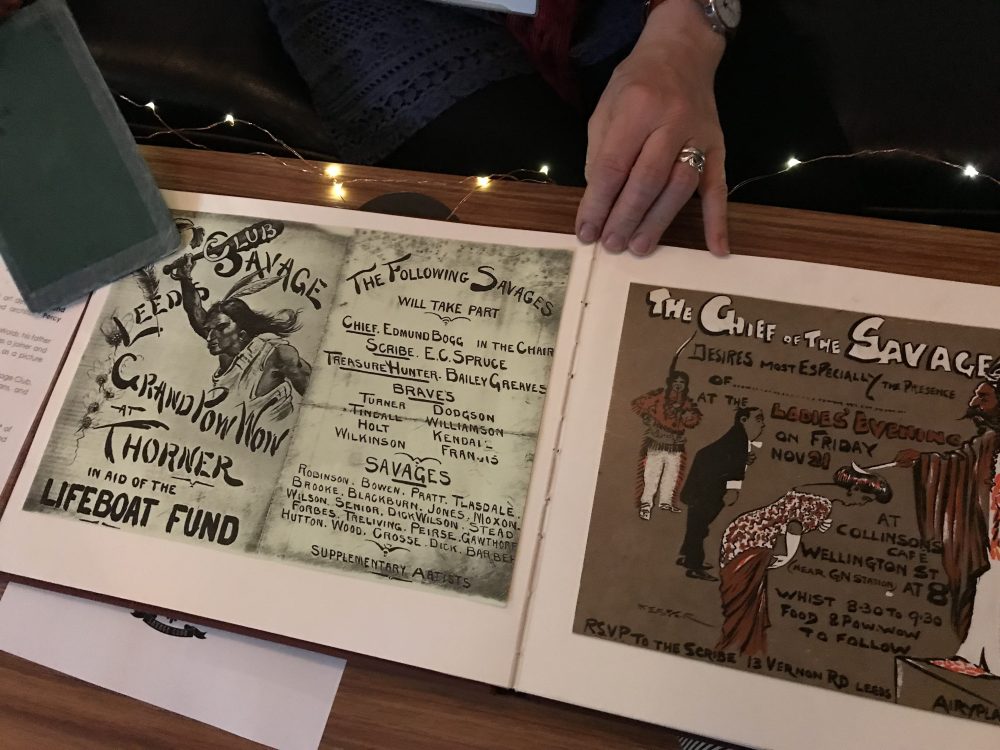 LEEDS
CLUB
SAVAGE
GRAND POW WOW
AT
THORNER
IN AID OF THE
LIFEBOAT FUND
THE FOLLOWING SAVAGES
WILL TAKE PART
CHIEF. EDMUND BOGG IN THE CHAIR
SCRIBE. E.C. SPRUCE
TREASURE HUNTER. BAILEY GREAVES
BRAVES
TURNER DODGSON
TINDALL WILLIAMSON
HOLT KENDALL
WILKINSON FRANCIS
SAVAGES
ROBINSON. BOWEN. PRATT. TLASDALE
BROOKE. BLACKBURN. JONES. MOXON.
WILSON. SENIOR. DICK WILSON. STEAD
FORBES. TRELIVING. PEIRSE. GAWTHORP
HUTTON. WOOD. CROSSE. DICK. BARBER
SUPPLEMENTARY ARTISTS
THE CHIEF OF THE SAVAGE
DESIRES MOST ESPECIALLY THE PRESENCE
OF
AT THE LADIES' EVENING
ON FRIDAY
NOV 21
AT
COLLINSONS
CAFE
WELLINGTON ST
(NEAR GN STATION) AT 8
WHIST 8-30 TO 9-30
FOOD & POW-WOW
TO FOLLOW
RSVP TO THE SCRIBE 13 VERNON RD LEEDS